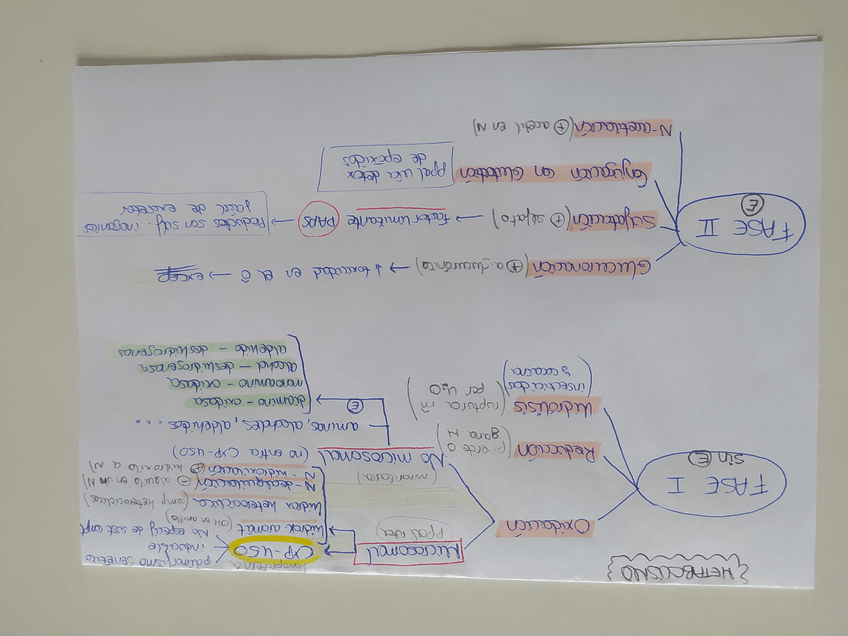 {METABOLISMO}
FASE I
sin E
Oxidación
Microsomal
ppal vía
CYP-450
hemoproteína
polimorfismo genético
inducible
No especif de sust
hidrox aromát (OH en anillo)
hidrox heterocíclica (comp heterocíclicos)
N-dealquilación
N-hidroxilación
No microsomal (no entra CYP-450)
(minoritaria)
aminas, alcoholes, aldehidos, ...
E
diamino - oxidasa
monoamino - oxidasa
alcohol - deshidrogenasa
aldehido - deshidrogenasa
Reducción (pierde O
gana H)
Hidrólisis (ruptura
por H2O)
(insecticidas
y cocaína)
FASE II
E
Glucuronación (+ a. glucurónico) → ↓ toxicidad en el → excep
Sulfatación (+ sulfato) → factor limitante PAPS → Productos son sulf. inorgánicos
fácil de excretar
Conjugación con Glutatión
ppal vía detox
de epóxidos
N-acetilación (+ acetil en N)